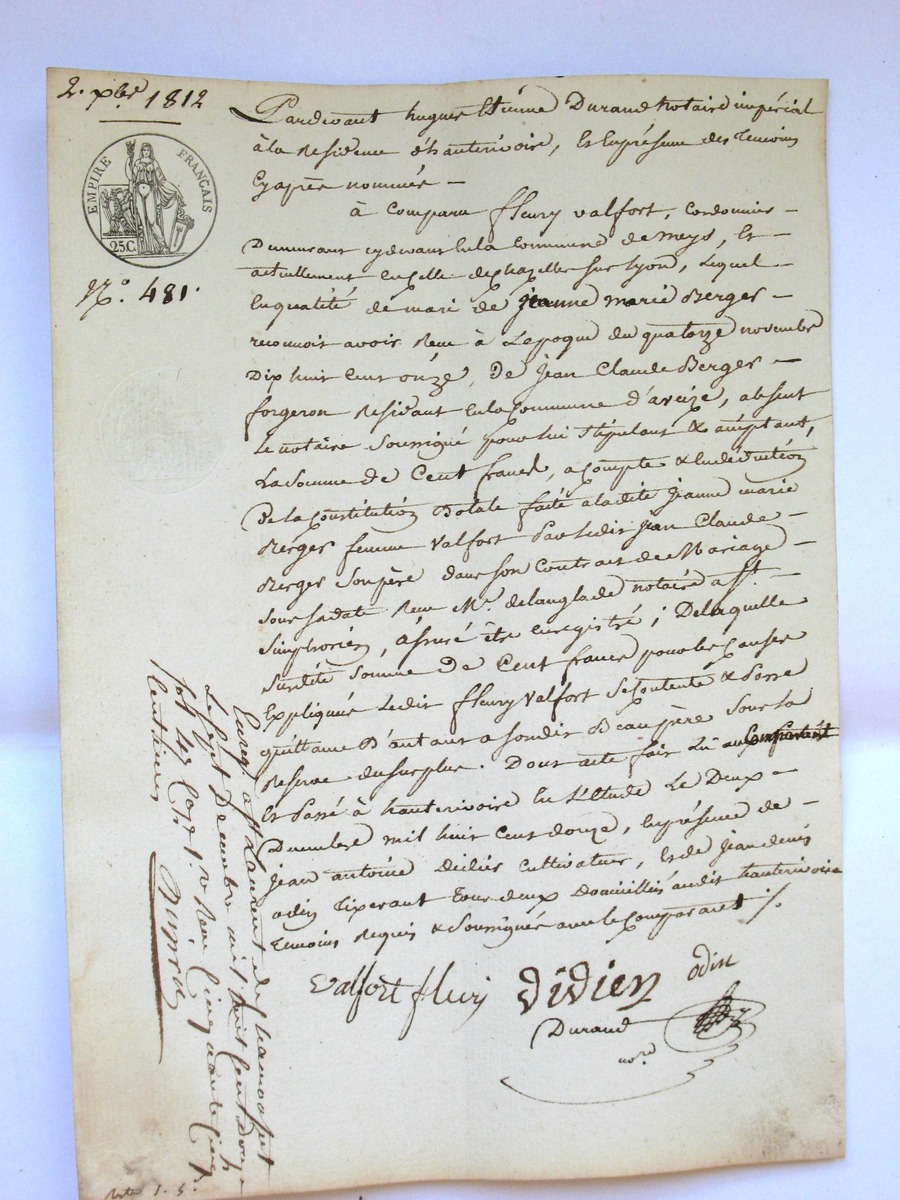 2. xbre 1812
EMPIRE FRANÇAIS
25C.
N.o 481.
Pardevant hugues Etienne Durand Notaire impérial
à la Residence d'hauterivoire, Et En présence des Temoins
Cy après nommés -
à Comparu fleury valfort, Cordonnier -
Demeurant cy devant En la Commune de meys, Et
actuellement En Celle de chazelles sur lyon, Lequel -
En qualité de mari de jeanne marie Berger -
reconnoit avoir Recu à L'epoque du quatorze novembre
Dix huit Cent onze, de jean Claude Berger -
forgeron Residant En la Commune d'aveize, absent
Le notaire Soussigné pour lui Stipulant & acceptant,
La Somme de Cent francs, a Compte & En deduction
De la Constitution Dotale faite a ladite jeanne marie
Berger femme Valfort Par Ledit jean Claude -
Berger Son père dans Son Contrat de Mariage -
Sous Sa date Recu Mr. delanglade notaire a St. -
Simphorien, assuré être enregistré ; De laquelle
Susdite Somme de Cent francs pour les Causes
Expliquées Ledit fleury Valfort Se Contente & Passe
quittance D'autant a Sondit Beaupère Sous La
Reserve du Surplus. Dont acte fait Lu au Comparant
Et Passé à hauterivoire En L'Etude Le Deux -
Decembre mil huit Cent douze, En présence de -
jean antoine didier Cultivateur, Et de jean denis
odin Tixerant Tous deux Domiciliés audit hauterivoire
Temoins Requis & Soussignés avec le Comparant ./.
Valfort fleuri Didier odin
Durand
nore
Enreg. a St Laurent de chamousset
Le Sept Decembre mil huit Cent douze
fol. 47 Recu Cinq
Centimes Dupré